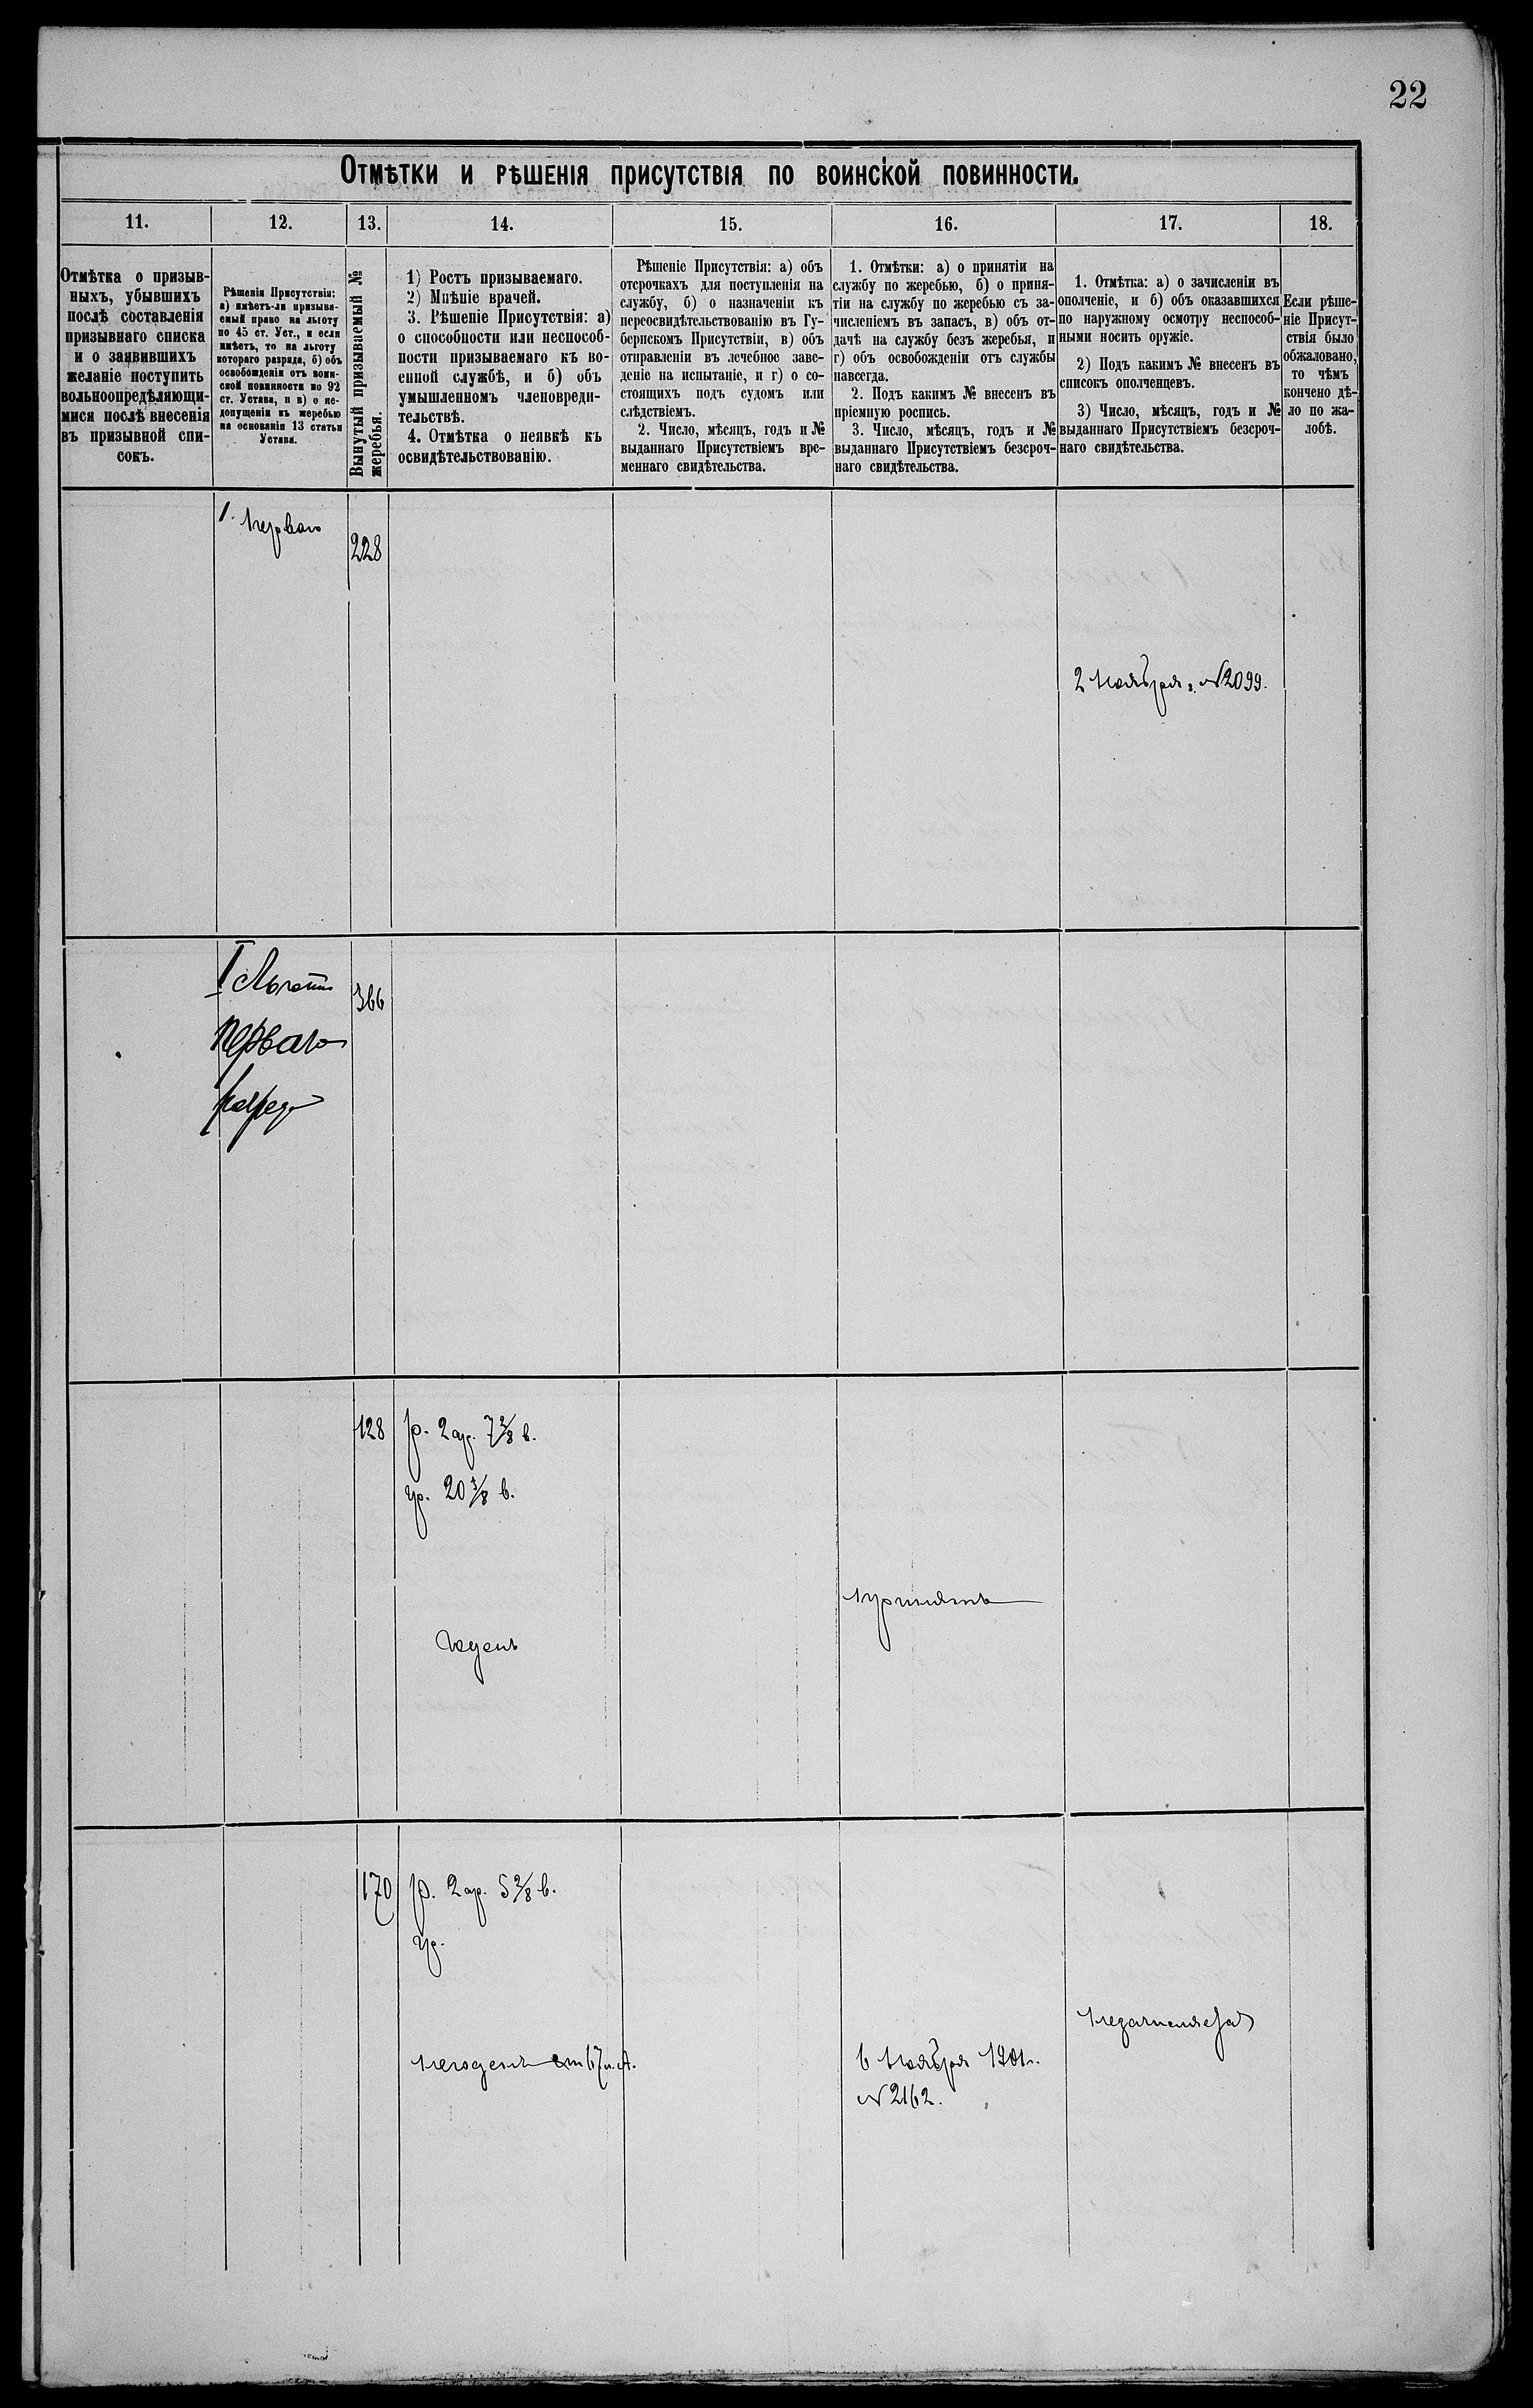 22
Отмѣтки и рѣшенія присутствія по воинской повинности.
11.
12.
13.
14.
15.
16.
17.
18.
Отмѣтка о призыв-
ныхъ, убывшихъ
послѣ составленія
призывнаго списка
и о заявившихъ
желаніе поступить
вольноопредѣляющи-
мися послѣ внесенія
въ призывной спи-
сокъ.
Рѣшенія Присутствія:
а) имѣетъ-ли призывае-
емый право на льготу
по 45 ст. Уст., и если
имѣетъ, то на льготу
котораго разряда, б) объ
освобожденіи отъ воин-
ской повинности по 92
ст. Устава, и в) о не-
допущеніи къ жеребью
на основаніи 13 статьи
Устава.
Вынутый призываемый №
жеребья.
1) Ростъ призываемаго.
2) Мнѣніе врачей.
3. Рѣшеніе Присутствія: а)
о способности или неспособ-
ности призываемаго къ во-
енной службѣ, и б) объ
умышленномъ членовреди-
тельствѣ.
4. Отмѣтка о неявкѣ къ
освидѣтельствованію.
Рѣшеніе Присутствія: а) объ
отсрочкахъ для поступленія на
службу, б) о назначеніи къ
переосвидѣтельствованію въ Гу-
бернскомъ Присутствіи, в) объ
отправленіи въ лечебное заве-
деніе на испытаніе, и г) о со-
стоящихъ подъ судомъ или
слѣдствіемъ.
2. Число, мѣсяцъ, годъ и №
выданнаго Присутствіемъ вре-
меннаго свидѣтельства.
1. Отмѣтки: а) о принятіи на
службу по жеребью, б) о приня-
тіи на службу по жеребью съ за-
численіемъ въ запасъ, в) объ от-
дачѣ на службу безъ жеребья, и
г) объ освобожденіи отъ службы
навсегда.
2. Подъ какимъ № внесенъ въ
пріемную роспись.
3. Число, мѣсяцъ, годъ и №
выданнаго Присутствіемъ безсроч-
наго свидѣтельства.
1. Отмѣтка: а) о зачисленіи въ
ополченіе, и б) объ оказавшихся
по наружному осмотру неспособ-
ными носить оружіе.
2) Подъ какимъ № внесенъ въ
списокъ ополченцевъ.
3) Число, мѣсяцъ, годъ и №
выданнаго Присутствіемъ безсроч-
наго свидѣтельства.
Если рѣше-
ніе Присут-
ствія было
обжаловано,
то чѣмъ
кончено дѣ-
ло по жа-
лобѣ.
1. перваго
228
2 Ноября. № 2099.
I Льготы
перваго
разряда
366
128
р. 2 ар. 7 2/8 в.
гр. 20 3/8 в.
годенъ
принятъ
170
р. 2 ар. 5 2/8 в.
гр.
негоденъ 67
6 Ноября 1901 г.
№ 2162.